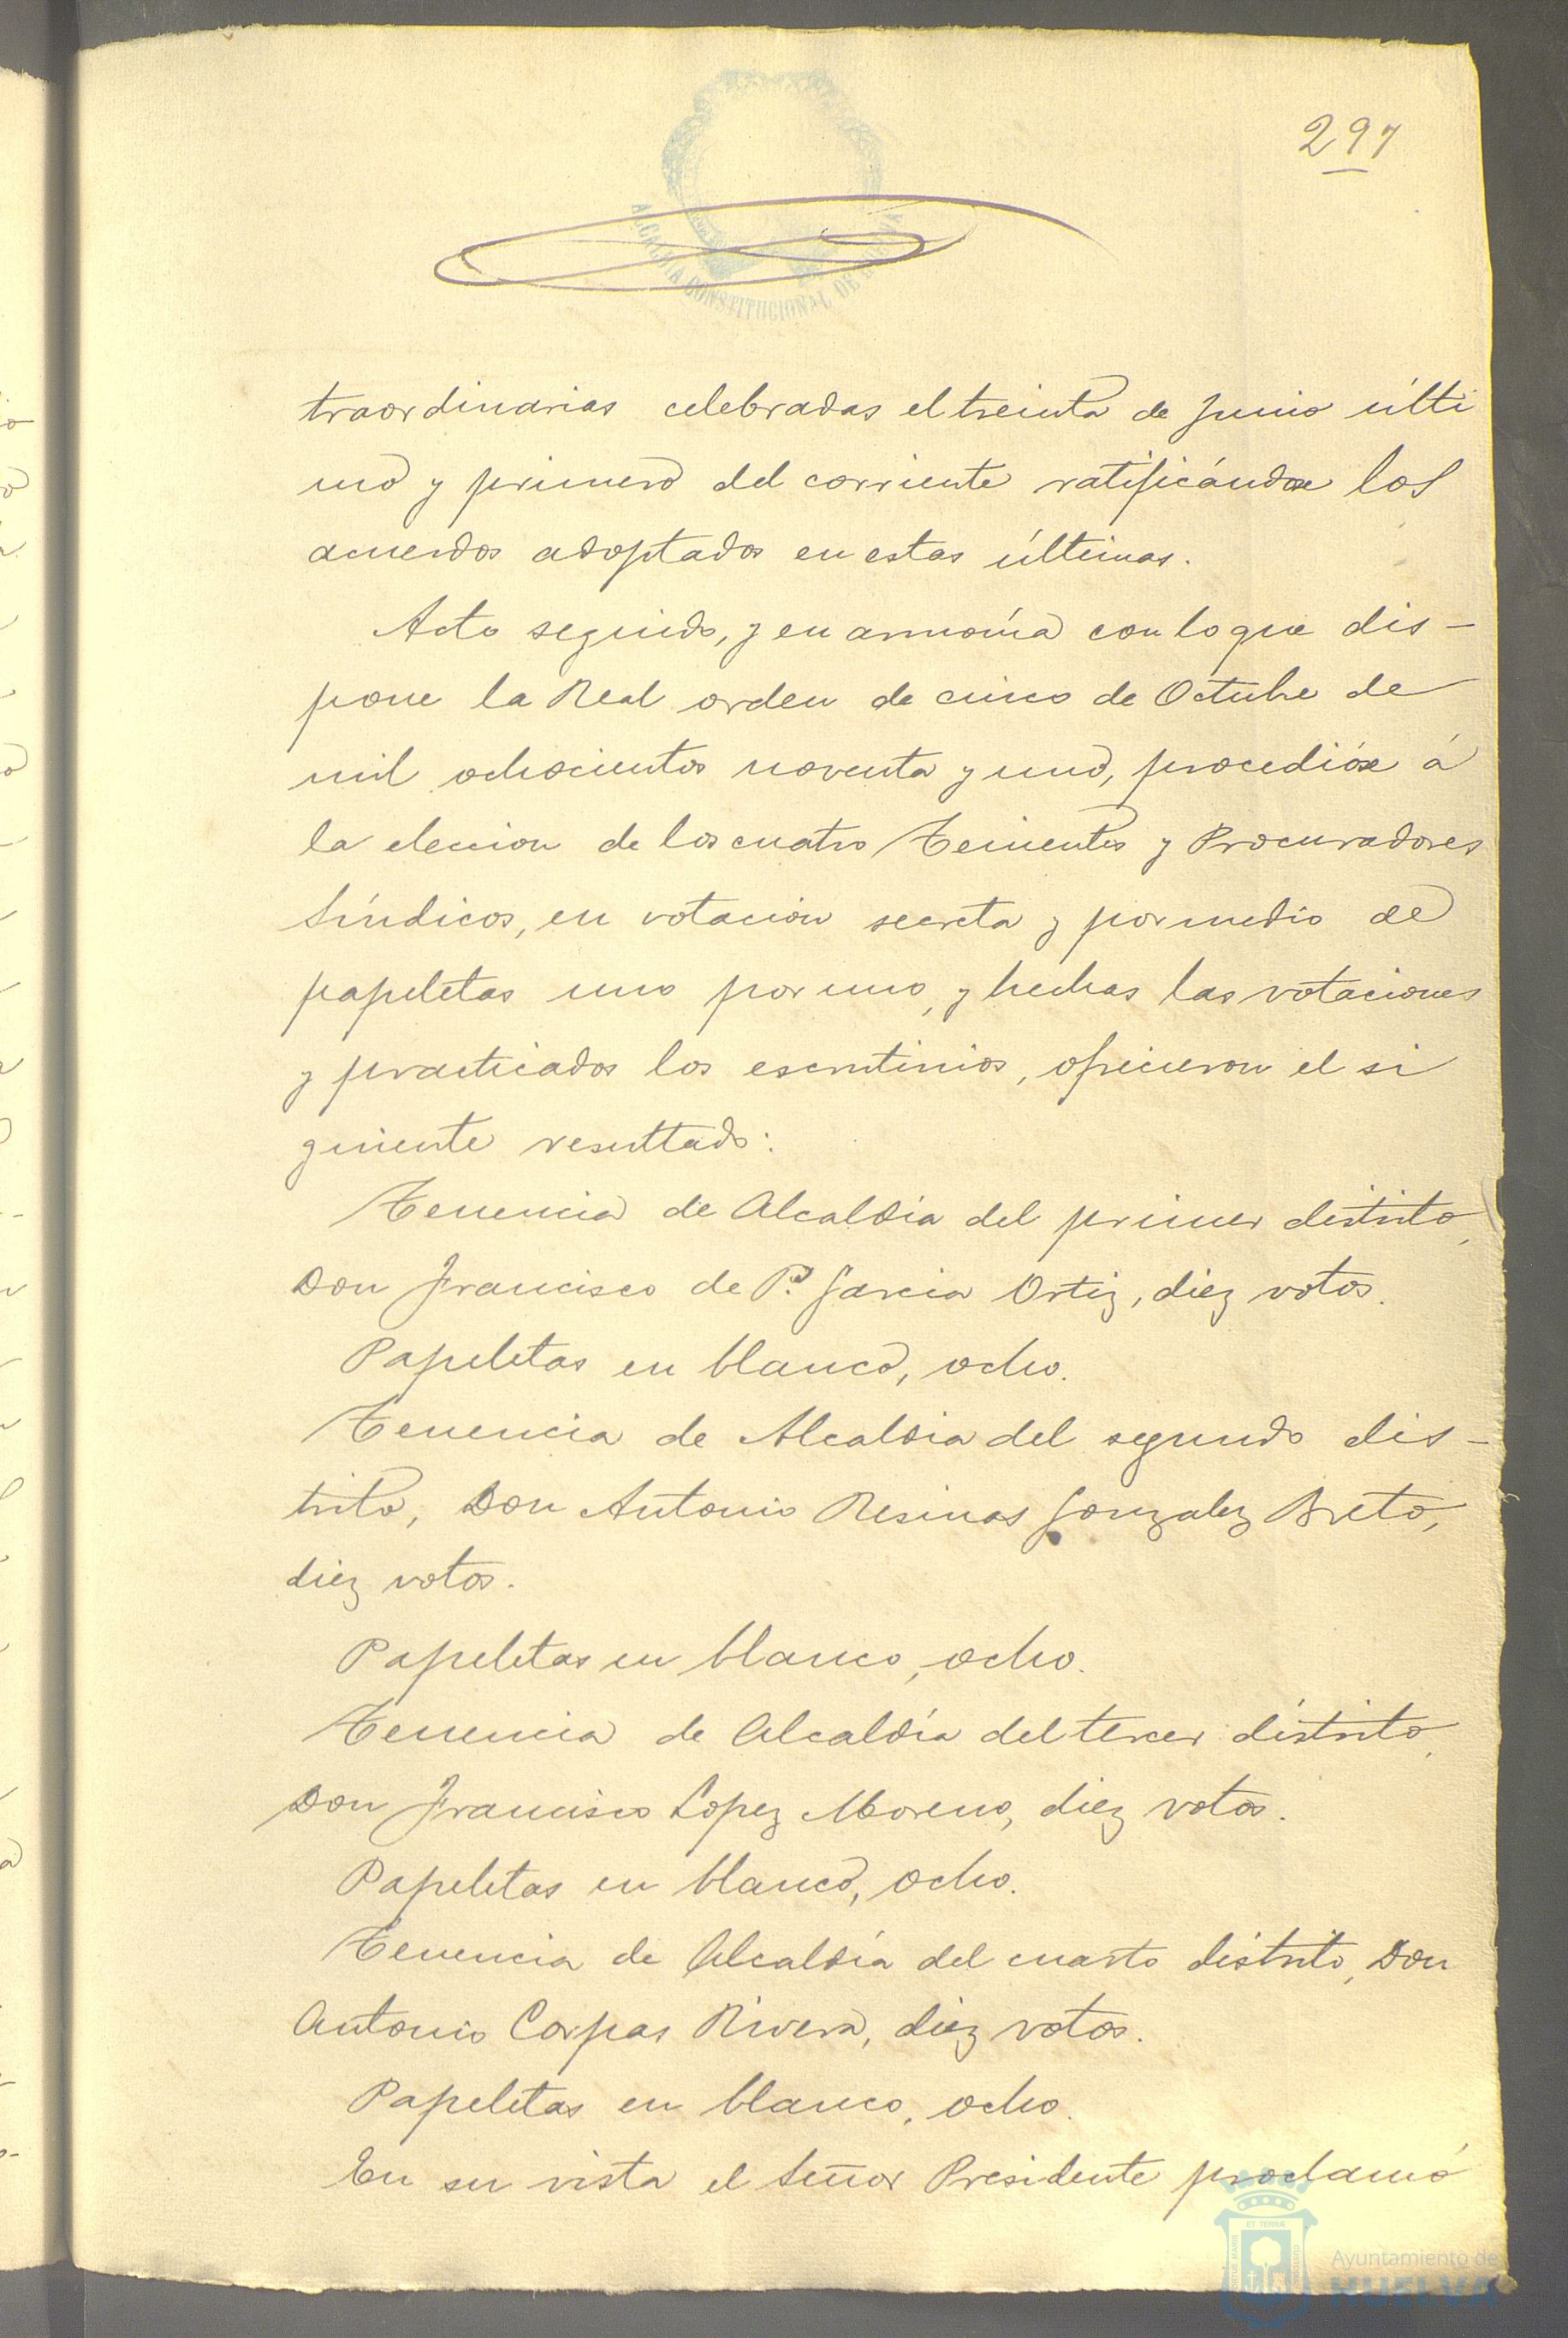 297
ALCALDIA CONSTITUCIONAL DE HUELVA
traordinarias celebradas el treinta de Junio últi
mo y primero del corriente ratificándose los
acuerdos adoptados en estas últimas.
Acto seguido, y en armonía con lo que dis-
pone la Real orden de cinco de Octubre de
mil ochocientos noventa y uno, procedióse á
la eleccion de los cuatro Tenientes y Procuradores
Síndicos, en votacion secreta y por medio de
papeletas uno por uno, y hechas las votaciones
y practicados los escrutinios, ofrecieron el si
guiente resultado:
Tenencia de Alcaldía del primer distrito,
Don Francisco de P.ª Garcia Ortiz, diez votos.
Papeletas en blanco, ocho.
Tenencia de Alcaldia del segundo dis-
trito, Don Antonio Resinas Gonzalez Breto,
diez votos.
Papeletas en blanco, ocho.
Tenencia de Alcaldía del tercer distrito,
Don Francisco Lopez Moreno, diez votos.
Papeletas en blanco, ocho.
Tenencia de Alcaldía del cuarto distrito, Don
Antonio Corpas Rivera, diez votos.
Papeletas en blanco, ocho.
En su vista el Señor Presidente proclamó
Ayuntamiento de
HUELVA